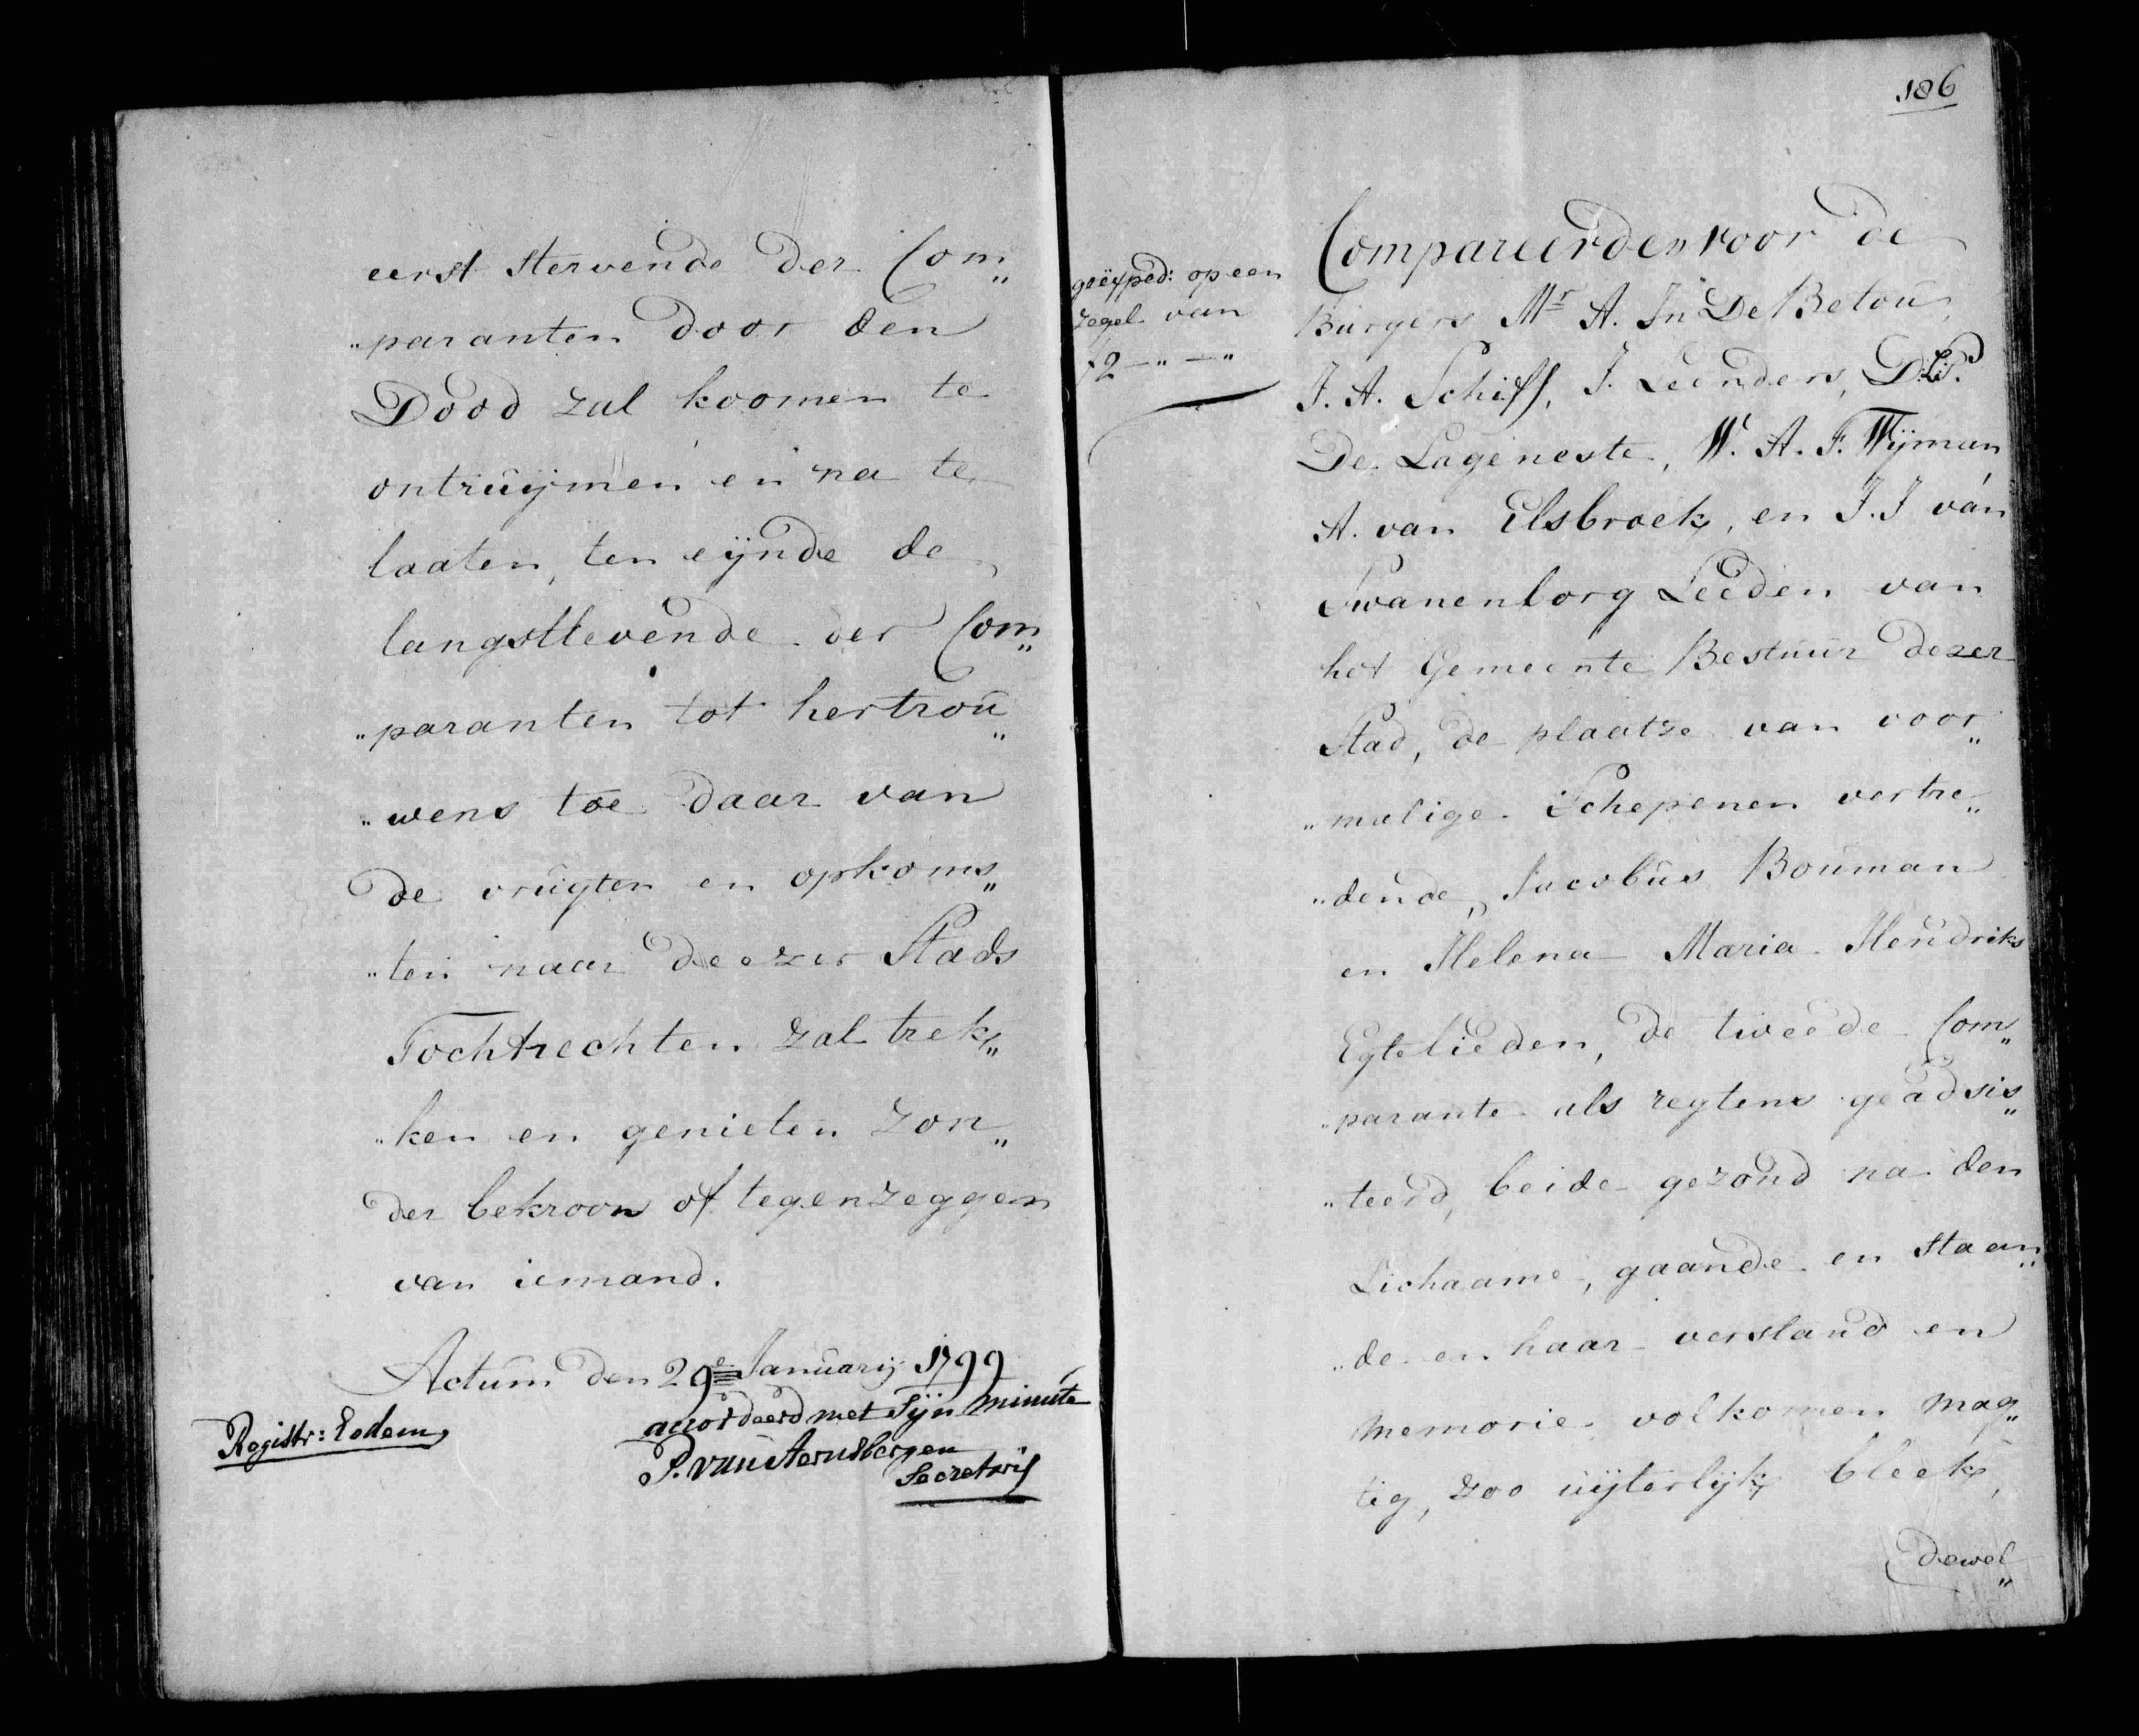 eerst stervende der Com„
„paranten door den
Dood zal koomen te
ontruijmen en na te
laaten, ten eijnde de
langstlevende der Com„
„paranten tot hertroú„
„wens toe daar van
de vrugten en opkoms„
„ten naar deezer Stads
Tochtrechten zal trek„
„ken en genieten zon„
der bekroon of tegenzeggen
van iemand.
Actum den 29e Januarij 1799
accordeerd met Sijn minute
Registr: Eodem
P. van Aernsbergen
Secretaris
186
geëxped: op een
zegel van
f 2 - „ - „
Compareerden voor de
Burgers Mr A. In De Betoú,
J. A. Schiff, J. Leenders,
De Lageneste, W. A. F. Wijman
A. van Elsbroek, en J. J van
Swanenborg Leeden van
het Gemeente Bestuur dezer
Stad, de plaatze van voor„
„malige Schepenen vertre„
„dende, Jacobus Bouman
en Helena Maria Hendriks
Egtelieden, de tweede Com„
„parante als regtens geadsis„
„teerd, beide gezond na den
Lichaame, gaande en staan„
„de en haar verstand en
memorie volkomen mag„
tig, zoo uijterlijk bleek,
dewel„